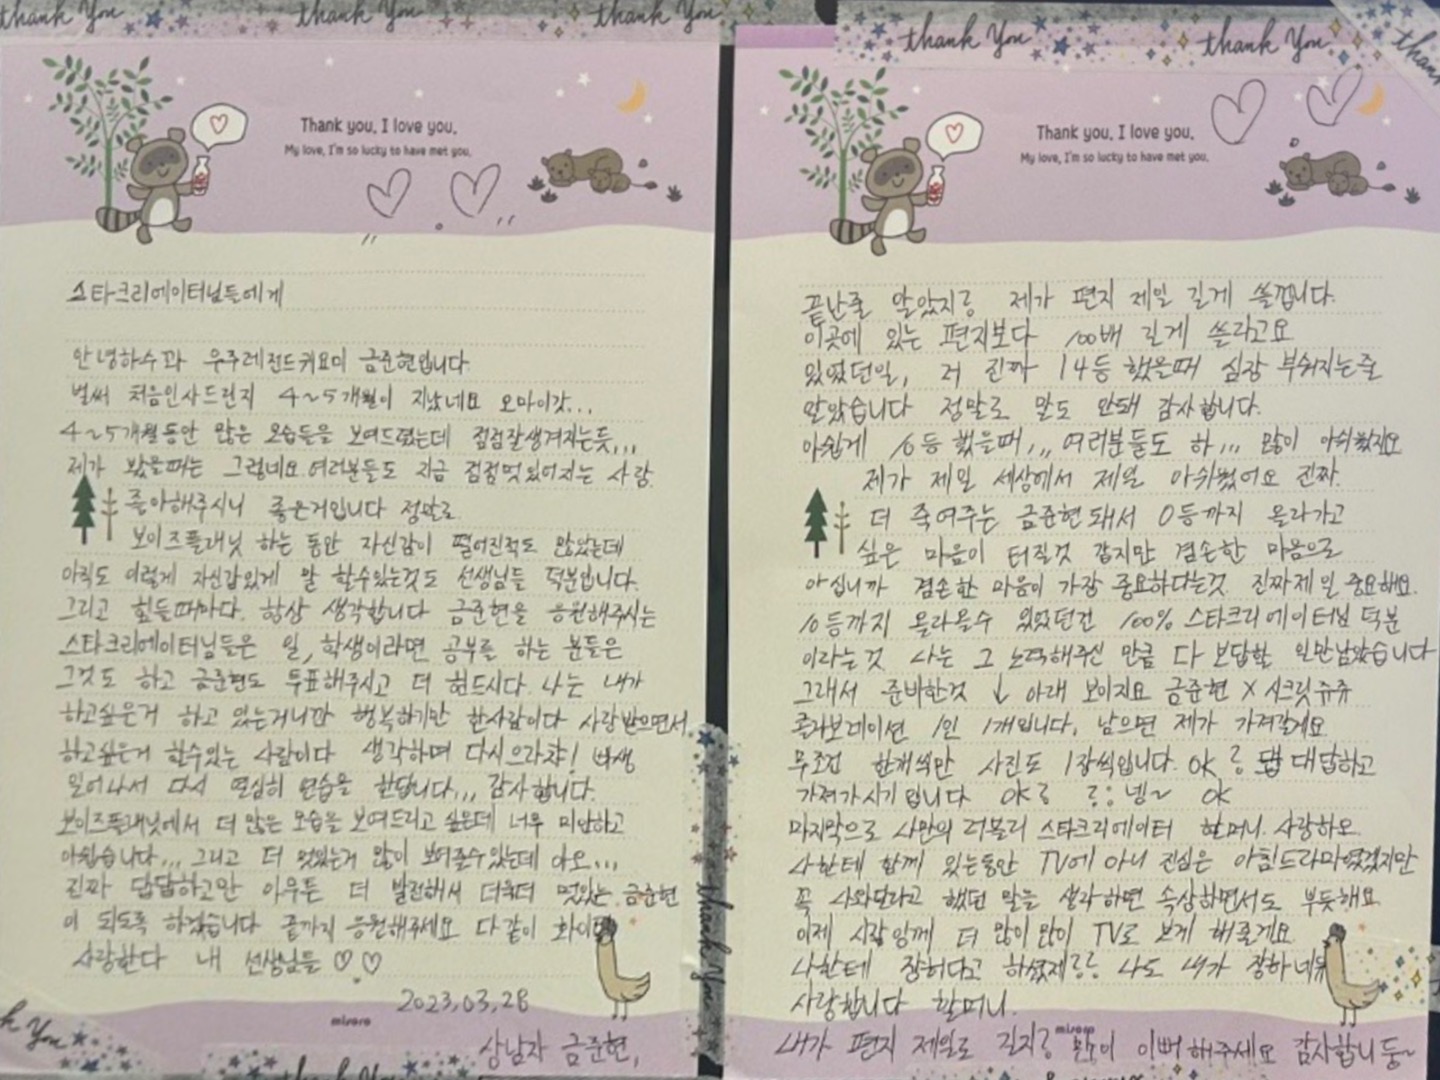 thank You
thank You
thank You
Thank you, I love you.
My love, I'm so lucky to have met you.
스타크리에이터님들에게
안녕하수꽈 우주레전드귀요미 금준현입니다
벌써 처음인사드린지 4~5개월이 지났네요 오마이갓...
4~5개월동안 많은 모습들을 보여드렸는데 점점잘생겨지는듯...
제가 봤을때는 그렇네요. 여러분들도 지금 점점멋있어지는 사람
좋아해주시니 좋은거입니다 정말로
보이즈플래닛 하는 동안 자신감이 떨어진적도 많았는데
아직도 이렇게 자신감있게 말 할수있는것도 선생님들 덕분입니다.
그리고 힘들때마다. 항상 생각합니다 금준현을 응원해주시는
스타크리에이터님들은 일, 학생이라면 공부를 하는 분들은
그것도 하고 금준현도 투표해주시고 더 힘드시다. 나는 내가
하고싶은거 하고 있는거니깐 행복하기만 한사람이다 사랑받으면서
하고싶은거 할수있는 사람이다 생각하며 다시으라챠! 벌생
일어나서 다시 열심히 연습을 한답니다... 감사합니다.
보이즈플래닛에서 더 많은 모습을 보여드리고 싶은데 너무 미안하고
아쉽습니다... 그리고 더 멋있는거 많이 보여줄수있는데 아오...
진짜 답답하고만 아무튼 더 발전해서 더 멋있는 금준현
이 되도록 하겠습니다 끝까지 응원해주세요 다같이 화이팅
사랑한다 내 선생님들 ♡ ♡
2023.03.28
misoro
상남자 금준현,
thank You
thank You
thank You
thank You
thank You
Thank you, I love you.
My love, I'm so lucky to have met you.
끝난줄 알았지롱 제가 편지 제일 길게 쓸껍니다.
이곳에 있는 편지보다 100배 길게 쓸라고요
있었던일, 저 진짜 14등 했을때 심장 부숴지는줄
알았습니다 정말로 말도 안돼 감사합니다.
아쉽게 10등 했을때... 여러분들도 하... 많이 아쉬웠지요
제가 제일 세상에서 제일 아쉬웠어요 진짜.
더 죽여주는 금준현돼서 0등까지 올라가고
싶은 마음이 터질것 같지만 겸손한 마음으로
아십니까 겸손한 마음이 가장 중요하다는것 진짜제일 중요해요.
10등까지 올라올수 있었던건 100% 스타크리에이터님 덕분
이라는것 나는 그 노력해주신 만큼 다 보답할 일만남았습니다
그래서 준비한것 ↓ 아래 보이지요 금준현 X 시크릿쥬쥬
콜라보레이션 1인 1개입니다, 남으면 제가 가져갈게요
무조건 한개씩만 사진도 1장씩입니다. OK? 대답하고
가져가시기입니다 OK? 넹~ OK
마지막으로 나만의 러블리 스타크리에이터 할머니. 사랑하오.
나한테 함께 있는동안 TV에 아니 진심은 아침드라마였겠지만
꼭 나와달라고 했던 말을 생각하면 속상하면서도 뿌듯해요
이제 시작임께 더 많이많이 TV로 보게 해줄게요
나한테 장허다고 하셨제 나도 내가 장하네유
사랑합니다 할머니.
misoro
내가 편지 제일로 길지롱 많이 이뻐해주세요 감사합니둥~